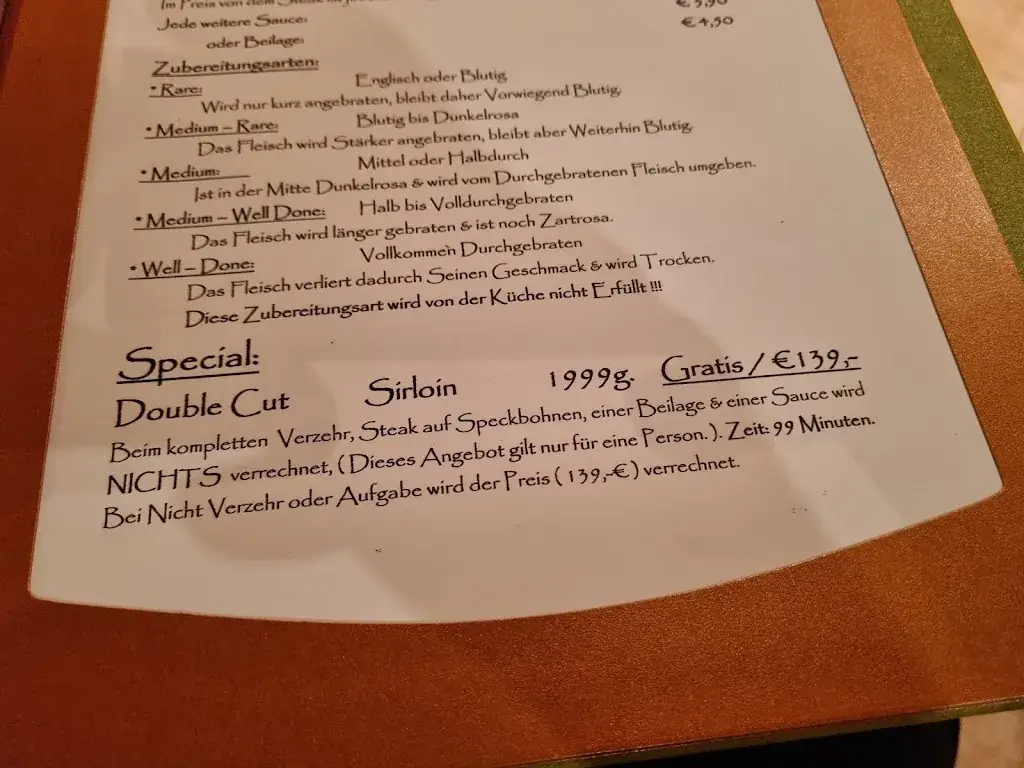 Im Preis von dem Steak
Jede weitere Sauce: € 3,90
oder Beilage: € 4,50
Zubereitungsarten:
• Rare: Englisch oder Blutig
Wird nur kurz angebraten, bleibt daher Vorwiegend Blutig.
• Medium – Rare: Blutig bis Dunkelrosa
Das Fleisch wird Stärker angebraten, bleibt aber Weiterhin Blutig.
• Medium: Mittel oder Halbdurch
Ist in der Mitte Dunkelrosa & wird vom Durchgebratenen Fleisch umgeben.
• Medium – Well Done: Halb bis Volldurchgebraten
Das Fleisch wird länger gebraten & ist noch Zartrosa.
• Well – Done: Vollkommen Durchgebraten
Das Fleisch verliert dadurch Seinen Geschmack & wird Trocken.
Diese Zubereitungsart wird von der Küche nicht Erfüllt !!!
Special:
Double Cut Sirloin 1999g. Gratis / €139,-
Beim kompletten Verzehr, Steak auf Speckbohnen, einer Beilage & einer Sauce wird
NICHTS verrechnet, ( Dieses Angebot gilt nur für eine Person. ). Zeit: 99 Minuten.
Bei Nicht Verzehr oder Aufgabe wird der Preis ( 139,-€ ) verrechnet.